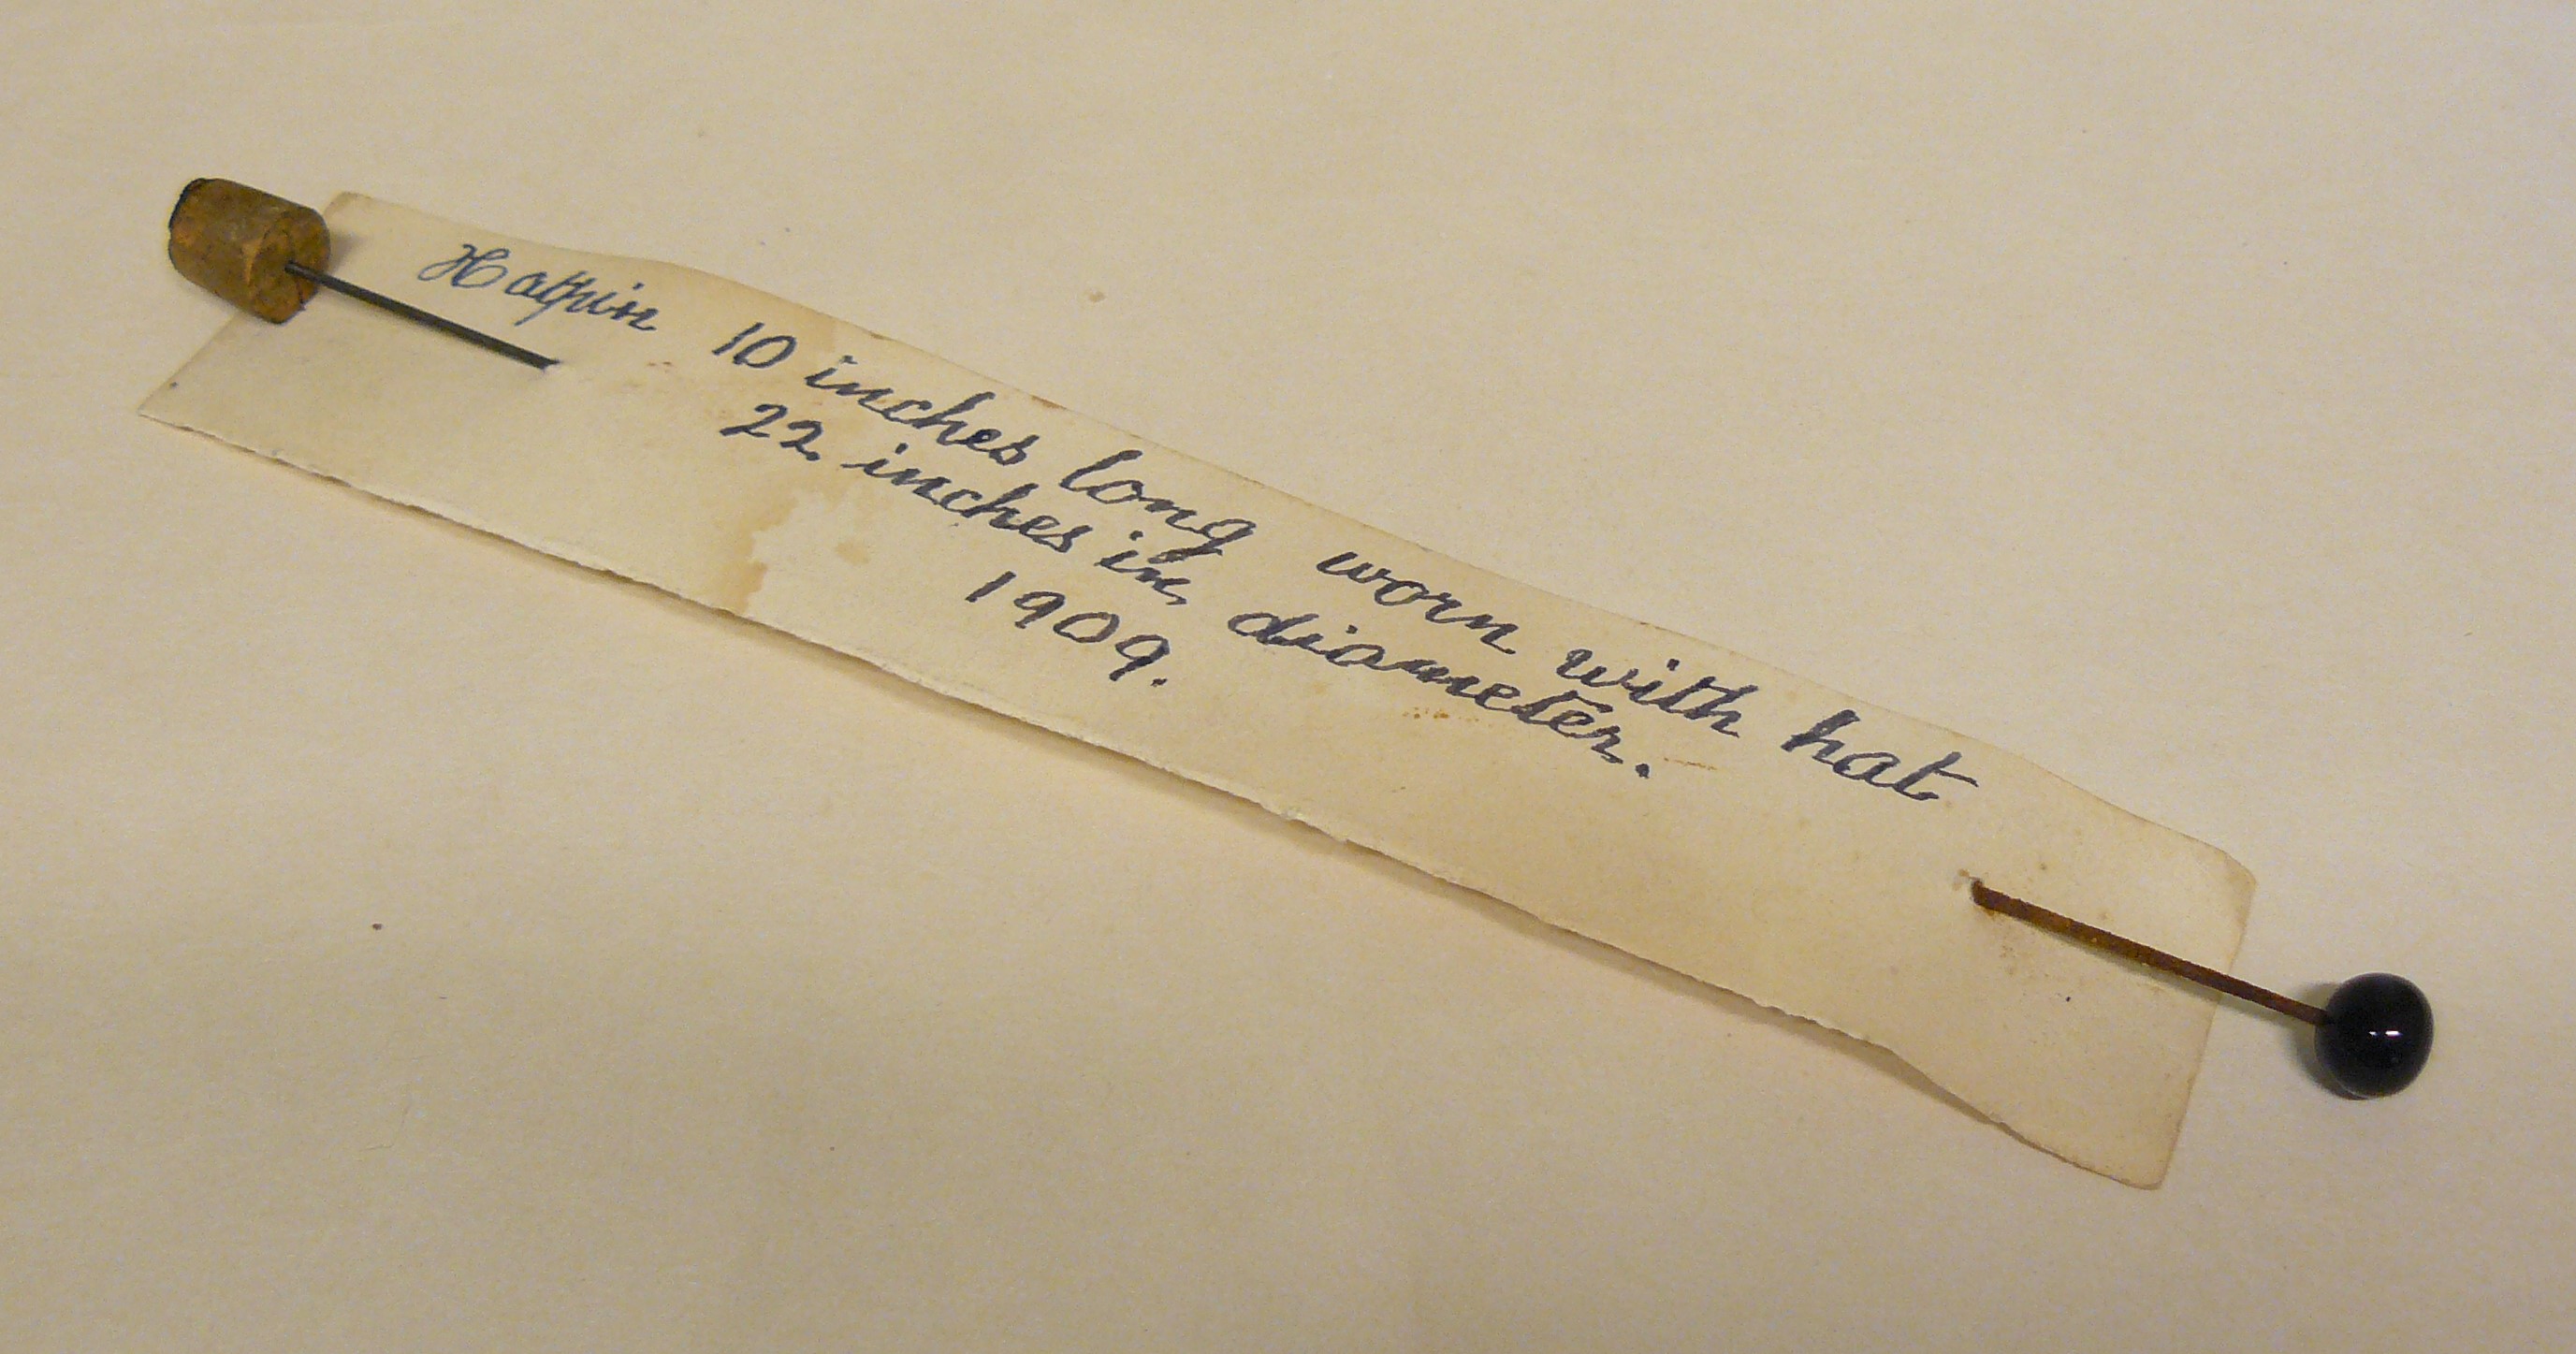 Hatpin 10 inches long worn with hat
22 inches in diameter.
1909.